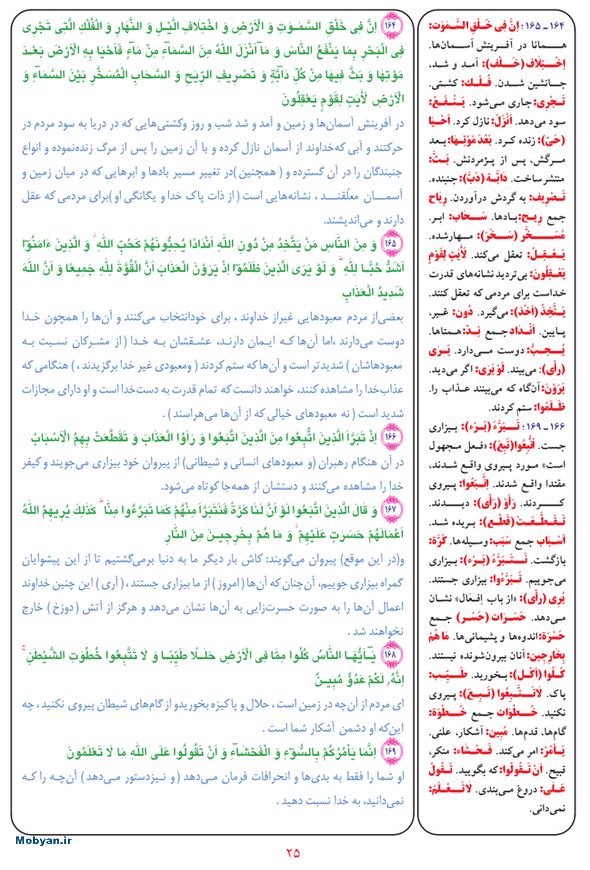 ۱۶۴ـ۱۶۵: إِنَّ فِی خَلْقِ السَّمٰوٰتِ:
همـانا در آفرینش آسمان‌ها.
إخْتِلَاف (خَلَفَ): آمد و شد،
جانشین شدن. فُـلْـك: کشتی.
تَجْرِی: جاری می‌شود. یَـنْـفَـعُ:
سود می‌دهد. أَنْزَلَ: نازل کرد. أَحْیَا
(حَیِیَ): زنده کرد. بَعْدَ مَوْتِهَا: بـعد
مرگش، پس از پژمردنش. بَـثَّ:
منتشر ساخت. دَابَّـة (دَبَّ): جنبنده.
تَصْرِیف: به گردش درآوردن. رِیَاح
جمع رِیـح: بـادها. سَـحَاب: ابر.
مُـسَـخَّـر (سَـخَّرَ): مـهارشده.
یَـعْـقِـلُ: تعقل می‌کند. لَأٰیٰتٍ لِقَوْمٍ
یَعْقِلُونَ: بی‌تردید نشانه‌های قدرت
خداست برای مردمی که تعقل کنند.
یَـتَّخِذُ (أَخَذَ): می‌گیرد. دُون: غیر،
پایین. أَنْدَاد جمع نِـدّ: همتاها.
یُـحِبُّ: دوست مـی‌دارد. یَـرَی
(رَأَی): می‌بیند. لَوْ یَرَی: اگر می‌دید.
یَرَوْنَ: آن‌گاه که می‌بینند عذاب را.
ظَلَمُوا: ستم کردند.
۱۶۶ـ۱۶۹: تَـبَرَّأَ (بَـرِءَ): بیزاری
جست. اُتُّبِعُوا (تَبِعَ): «فـعل مـجهول
است» مورد پیروی واقـع شـدند،
مقتدا واقع شدند. إتَّـبَعُوا: پیروی
کـــردند. رَأَوْ (رَأَی): دیـــدند.
تَـقَـطَّـعَـتْ (قَطَعَ): بریده شـد.
أَسْبَاب جمع سَبَب: وسیله‌ها. کَرَّة:
بازگشت. نَـتَـبَرَّءُ (بَـرِءَ): بیزاری
می‌جوییم. تَـبَرَّءُوا: بیزاری جستند.
یُرِی (رَأَی): «از باب إفعال» نشان
می‌دهد. حَسَرَات (حَسَرَ) جمع
حَسْرَة: اندوه‌ها و پشیمانی‌ها. مَا هُمْ
بِخَارِجِینَ: آنان بیرون‌شونده نیستند.
کُـلُوا (أَکَـلَ): بـخورید. طَـیِّب:
پاک. لَا تَتَّبِعُوا (تَبِعَ): پـیروی
نکنید. خُـطُوَات جـمع خُـطْوَة:
گام‌ها، قدم‌ها. مُبِین: آشکار، علنی.
یَـأْمُرُ: امر می‌کند. فَـحْشَاء: منکر،
قبیح. أَنْ تَقُولُوا: که بگویید. تَـقُولُ
عَلَی: دروغ می‌بندی. لَا تَـعْلَمُ:
نمی‌دانی.
۱۶۴ إِنَّ فِی خَلْقِ السَّمٰوٰتِ وَ الْأَرْضِ وَ اخْتِلَافِ الَّیْلِ وَ النَّهَارِ وَ الْفُلْكِ الَّتِی تَجْرِی
فِی الْبَحْرِ بِمَا یَنْفَعُ النَّاسَ وَ مَآ أَنْزَلَ اللهُ مِنَ السَّمَآءِ مِنْ مَآءٍ فَأَحْیَا بِهِ الْأَرْضَ بَعْدَ
مَوْتِهَا وَ بَثَّ فِیهَا مِنْ كُلِّ دَآبَّةٍ وَ تَصْرِیفِ الرِّیٰحِ وَ السَّحَابِ الْمُسَخَّرِ بَیْنَ السَّمَآءِ وَ
الْأَرْضِ لَأٰیٰتٍ لِقَوْمٍ یَعْقِلُونَ
در آفرینش آسمان‌ها و زمین و آمد و شد شب و روز وکشتی‌هایی که در دریا به سود مردم در
حرکتند و آبی که‌خداوند از آسمان نازل کرده و با آن زمین را پس از مرگ زنده‌نموده و انواع
جنبندگان را در آن گسترده و ( همچنین )در تغییر مسیر بادها و ابرهایی که در میان زمین و
آسمـــان معلّقنـــد ، نشانه‌هایی است ( از ذات پاک خدا و یگانگی او )برای مردمی که عقل
دارند و می‌اندیشند.
۱۶۵ وَ مِنَ النَّاسِ مَنْ یَتَّخِذُ مِنْ دُونِ اللهِ أَنْدَادًا یُحِبُّونَهُمْ كَحُبِّ اللهِ ۖ وَ الَّذِینَ ءَامَنُوٓا
أَشَدُّ حُبًّـا لِلهِ ۗ وَ لَوْ یَرَی الَّذِینَ ظَلَمُوٓا إِذْ یَرَوْنَ الْعَذَابَ أَنَّ الْقُوَّةَ لِلهِ جَمِیعًا وَ أَنَّ اللهَ
شَدِیدُ الْعَذَابِ
بعضی‌از مردم معبودهایی غیراز خداوند ، برای خودانتخاب می‌کنند و آن‌ها را همچون خدا
دوست می‌دارند ،اما آن‌ها کـه ایـمان دارنـد، عشـقشان بـه خـدا ( از مشرکان نسبت بـه
معبودهاشان ) شدیدتر است و آن‌ها که ستم کردند ( ومعبودی غیر خدا برگزیدند ، ) هنگامی که
عذاب‌خدا را مشاهده کنند، خواهند دانست‌که تمام قدرت به دست‌خدا است و او دارای مجازات
شدید است ( نه معبودهای خیالی که از آن‌ها می‌هراسند ) .
۱۶۶ إِذْ تَبَرَّأَ الَّذِینَ اتُّبِعُوا مِنَ الَّذِینَ اتَّبَعُوا وَ رَأَوُا الْعَذَابَ وَ تَقَطَّعَتْ بِهِمُ الْأَسْبَابُ
در آن هنگام رهبران (و معبودهای انسانی و شیطانی) از پیروان خود بیزاری می‌جویند و کیفر
خدا را مشاهده می‌کنند و دستشان از همه‌جا کوتاه می‌شود.
۱۶۷ وَ قَالَ الَّذِینَ اتَّبَعُوا لَوْ أَنَّ لَنَا كَرَّةً فَنَتَبَرَّأَ مِنْهُمْ كَمَا تَبَرَّءُوا مِنَّا ۗ كَذٰلِكَ یُرِیهِمُ اللهُ
أَعْمَالَهُمْ حَسَرٰتٍ عَلَیْهِمْ ۖ وَ مَا هُمْ بِخٰرِجِینَ مِنَ النَّارِ
و(در این موقع) پیروان می‌گویند: کاش بار دیگر ما به دنیا برمی‌گشتیم تا از این پیشوایان
گمراه بیزاری جوییم، آن‌چنان که آن‌ها ( امروز ) از ما بیزاری جستند ، ( آری ) این چنین خداوند
اعمال آن‌ها را به صورت حسرت‌زایی به آن‌ها نشان می‌دهد و هرگز از آتش ( دوزخ ) خارج
نخواهند شد .
۱۶۸ یَـٰٓأَیُّهَا النَّاسُ كُلُوا مِمَّا فِی الْأَرْضِ حَلٰـلًا طَیِّبًـا وَ لَا تَتَّبِعُوا خُطُوٰتِ الشَّیْطٰنِ ۚ
إِنَّهُ لَكُمْ عَدُوٌّ مُبِیـنٌ
ای مردم از آن‌چه در زمین است ، حلال و پاکیزه بخوریدو از گام‌های شیطان پیروی نکنید ، چه
این‌که او دشمن آشکار شما است .
۱۶۹ إِنَّمَا یَأْمُرُكُمْ بِالسُّوٓءِ وَ الْفَحْشَآءِ وَ أَنْ تَقُولُوا عَلَی اللهِ مَا لَا تَعْلَمُونَ
او شما را فقط به بدی‌ها و انحرافات فرمان مـی‌دهد ( و نیزدستور می‌دهد ) آن‌چـه را کـه
نمی‌دانید، به خدا نسبت دهید .
Mobyan.ir
۲۵